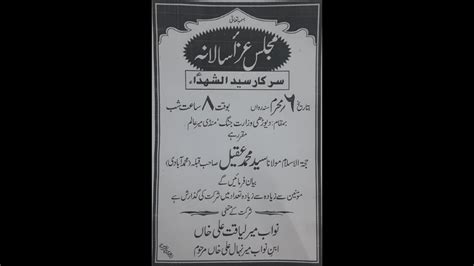 باسمہ تعالیٰ
مجلس عزا سالانہ
سرکار سید الشہداء
بتاریخ ۶ محرم سنہ رواں بوقت ۸ ساعت شب
بمقام: دیوڑھی وزارت جنگ، منڈی میر عالم
مقرر ہے
حجۃ الاسلام مولانا سید محمد عقیل صاحب قبلہ (محمدآبادی)
بیان فرمائیں گے
مومنین سے زیادہ سے زیادہ تعداد میں شرکت کی گذارش ہے
شرکت کے متمنی
نواب میر لیاقت علی خاں
ابن نواب میر نہال علی خاں مرحوم